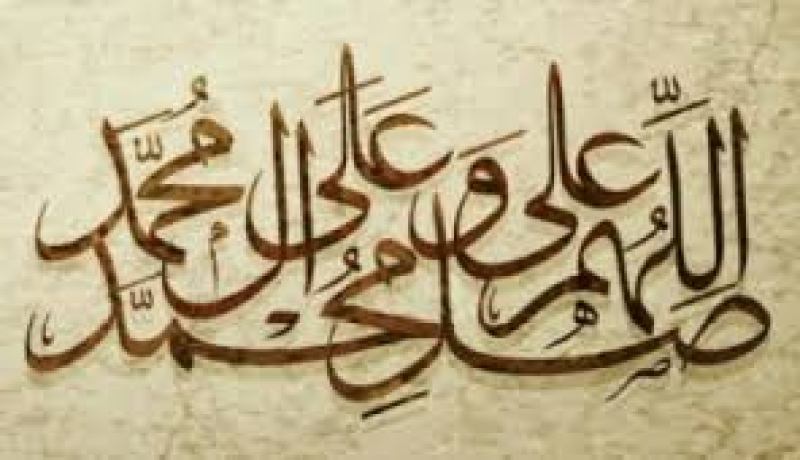 اللّٰهُمَّ صَلِّ عَلَى مُحَمَّد وَعَلَى آلِ مُحَمَّد